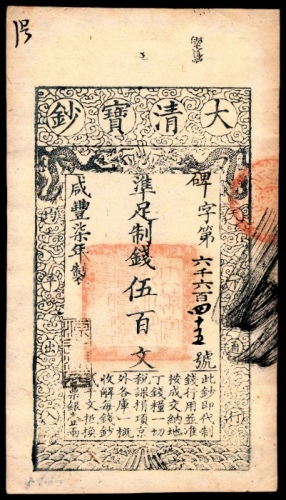 大清寶鈔
天下通行
碑字第六千六百四十五號
準足制錢伍百文
咸豐柒年製
均平出入
此鈔即代制
錢行用並准
按成交納地
丁錢糧一切
稅課捐項京
外各庫一概
收解每錢鈔
貳千文抵換
官票銀壹兩